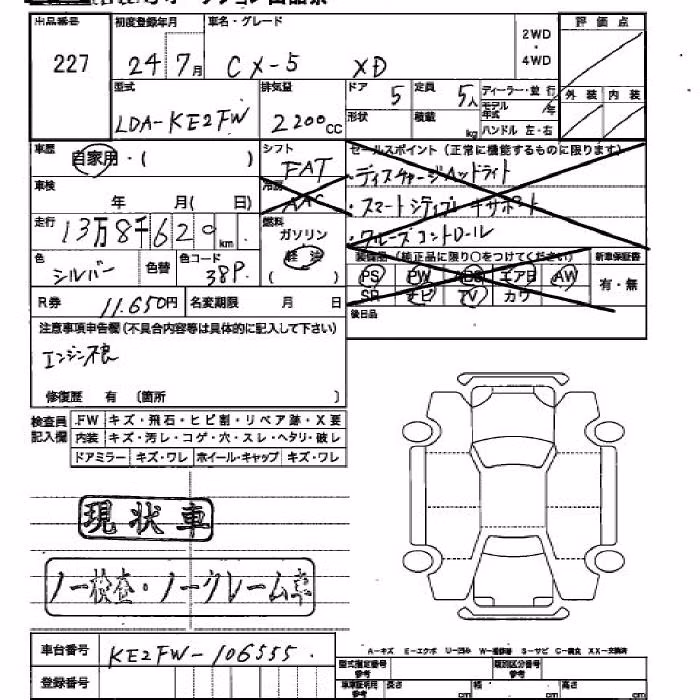 出品番号 初度登録年月 車名・グレード 2WD・4WD 評価点
227 24 7月 CX-5 XD
型式 排気量 ドア 5 定員 5人 ディーラー・並行 外装 内装
モデル年式 年
LDA-KE2FW 2200cc 形状 積載 kg ハンドル 左・右
車歴 自家用・( ) シフト FAT セールスポイント(正常に機能するものに限ります)
・ディスチャージヘッドライト
車検 年 月( 日) 冷房 AAC ・スマートシティブレーキサポート
走行 13万8千620km 燃料 ガソリン 軽油 ( ) ・クルーズコントロール
色 シルバー 色替 色コード 38P 装備品(純正品に限り○をつけてください) 新車保証書
PS PW ABS エアB AW 有・無
SR ナビ TV カワ
R券 11.650円 名変期限 月 日 後日品
注意事項申告欄(不具合内容等は具体的に記入して下さい)
エンジン不良
修復歴 有 (箇所 )
検査員記入欄 FW キズ・飛石・ヒビ割・リペア跡・X要
内装 キズ・汚レ・コゲ・穴・スレ・ヘタリ・破レ
ドアミラー キズ・ワレ ホイール・キャップ キズ・ワレ
現状車
ノー検査・ノークレーム車
A-キズ E-エクボ U-凹み W-補修跡 S-サビ C-腐食 XX-交換済
車台番号 KE2FW-106555
型式指定番号 参考 類別区分番号 参考
登録番号 車車証明用 参考 長さ cm 幅 cm 高さ cm